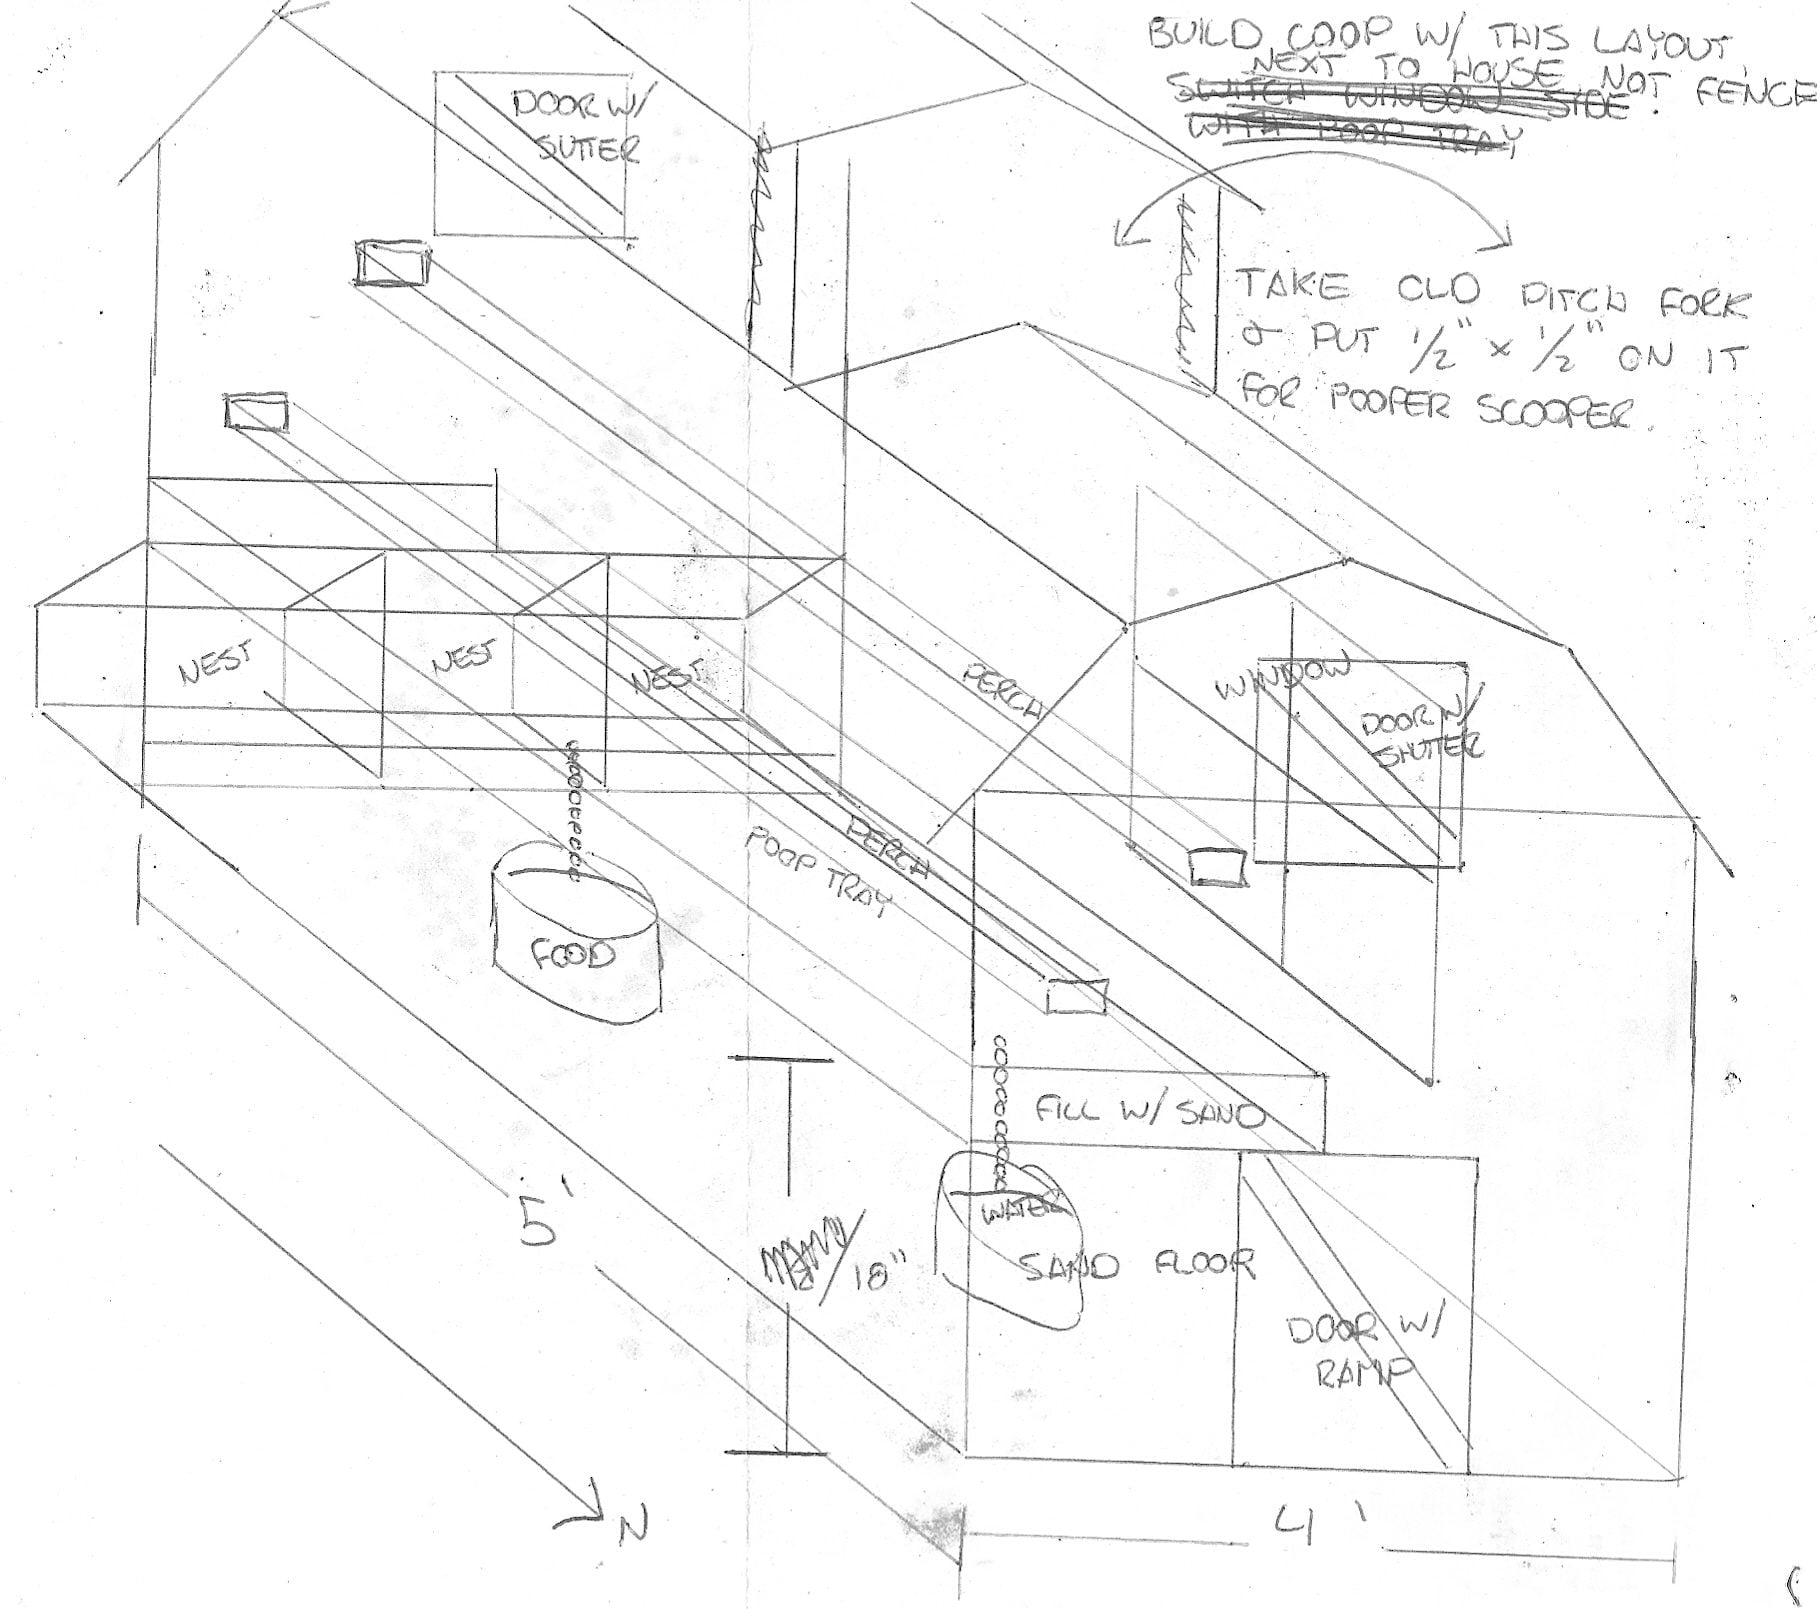 BUILD COOP W/ THIS LAYOUT,
NEXT TO HOUSE NOT FENCE.
SWITCH WINDOW SIDE
WITH POOP TRAY
DOOR W/
SUTTER
TAKE OLD PITCH FORK
& PUT 1/2" x 1/2" ON IT
FOR POOPER SCOOPER.
NEST
NEST
NEST
PERCH
WINDOW
DOOR W/
SHUTTER
PERCH
POOP TRAY
FOOD
FILL W/ SAND
WATER
SAND FLOOR
5'
18"
DOOR W/
RAMP
N
4'